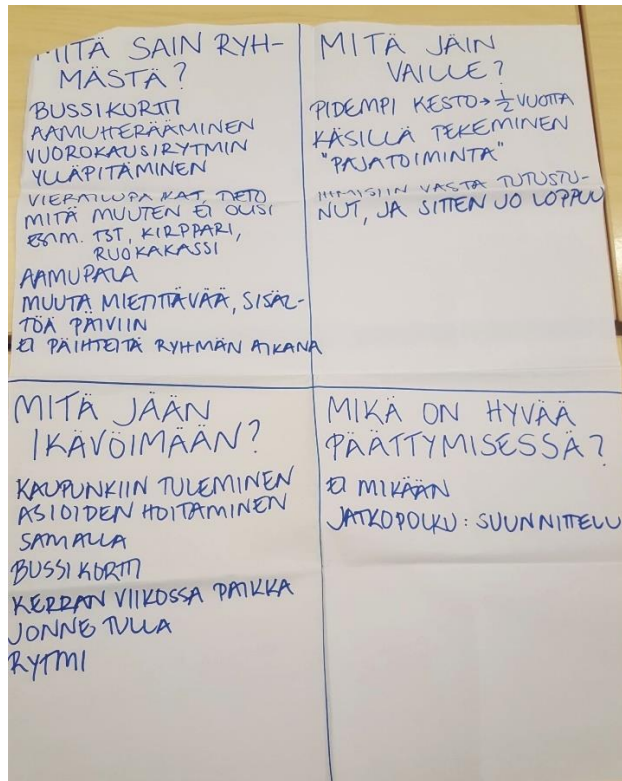 MITÄ SAIN RYH-
MÄSTÄ?
BUSSIKORTTI
AAMUHERÄÄMINEN
VUOROKAUSIRYTMIN
YLLÄPITÄMINEN
VIERAILUPAIKAT, TIETO
MITÄ MUUTEN EI OLISI
ESIM. TST, KIRPPARI,
RUOKAKASSI
AAMUPALA
MUUTA MIETITTÄVÄÄ, SISÄL-
TÖÄ PÄIVIIN
EI PÄIHTEITÄ RYHMÄN AIKANA
MITÄ JÄIN
VAILLE?
PIDEMPI KESTO → 1/2 VUOTTA
KÄSILLÄ TEKEMINEN
"PAJATOIMINTA"
IHMISIIN VASTA TUTUSTU-
NUT, JA SITTEN JO LOPPUU
MITÄ JÄÄN
IKÄVÖIMÄÄN?
KAUPUNKIIN TULEMINEN
ASIOIDEN HOITAMINEN
SAMALLA
BUSSIKORTTI
KERRAN VIIKOSSA PAIKKA
JONNE TULLA
RYTMI
MIKÄ ON HYVÄÄ
PÄÄTTYMISESSÄ?
EI MIKÄÄN
JATKOPOLKU: SUUNNITTELU